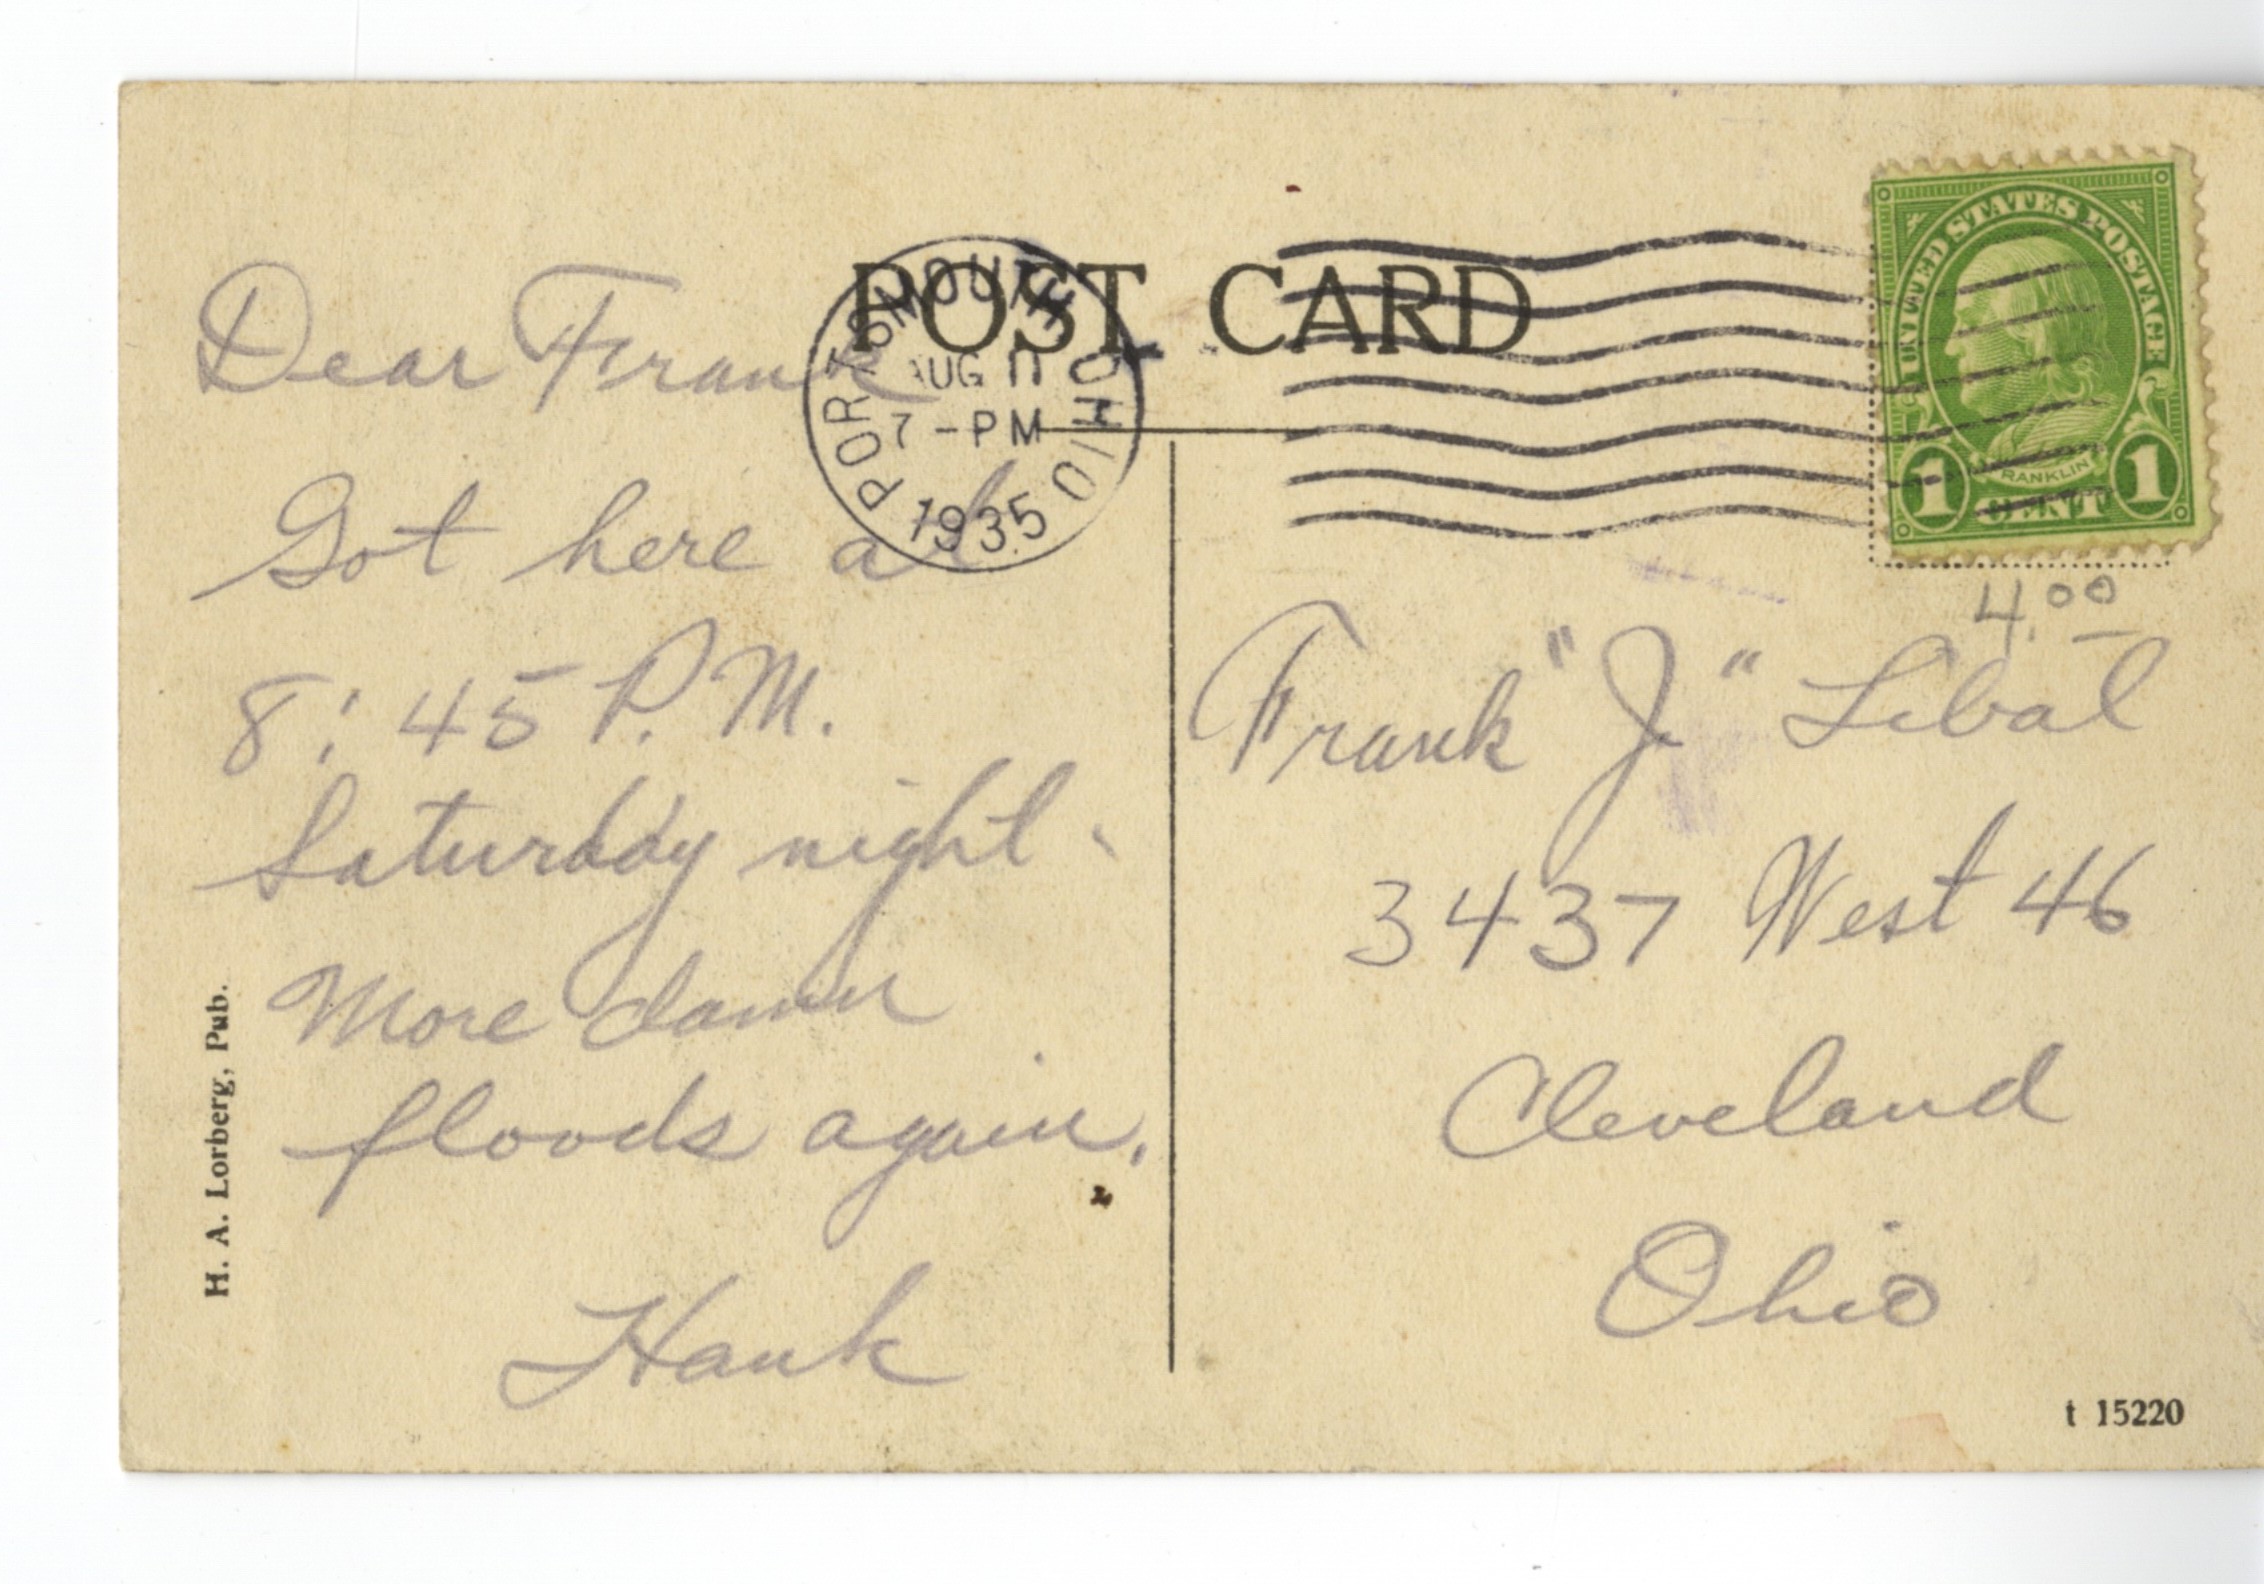 POST CARD
PORTSMOUTH OHIO
AUG 11
7-PM
1935
UNITED STATES POSTAGE
FRANKLIN
1 CENT 1
4.00
Dear Frank
Got here at
8:45 P.M.
Saturday night.
More damn
floods again.
Hank
Frank "J." Libal
3437 West 46
Cleveland
Ohio
H. A. Lorberg, Pub.
t 15220